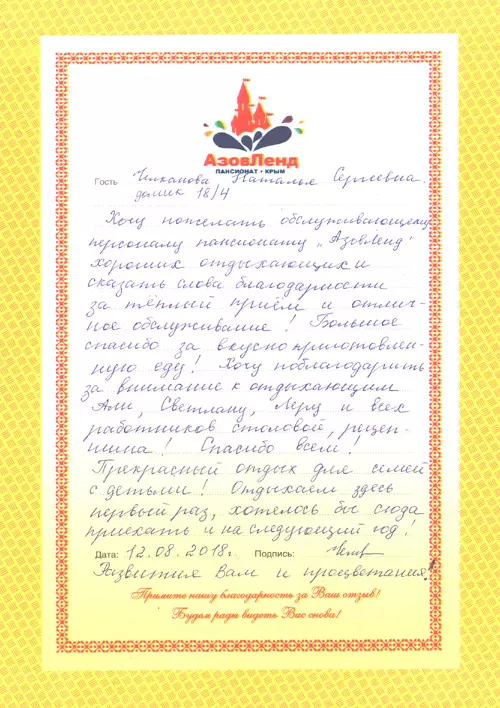 АзовЛенд
ПАНСИОНАТ • КРЫМ
Гость Наталья Сергеевна.
домик 18/4
Хочу пожелать обслуживающему
персоналу пансионату „АзовЛенд"
хороших отдыхающих и
сказать слова благодарности
за тёплый приём и отлич-
ное обслуживание! Большое
спасибо за вкусно приготовлен-
ную еду! Хочу поблагодарить
за внимание к отдыхающим
Али, Светлану, Леру и всех
работников столовой, рецеп-
шина! Спасибо всем!
Прекрасный отдых для семей
с детьми! Отдыхаем здесь
первый раз, хотелось бы сюда
приехать и на следующий год!
Дата: 12.08.2018г. Подпись:
Развития Вам и процветания!
Примите нашу благодарность за Ваш отзыв!
Будем рады видеть Вас снова!